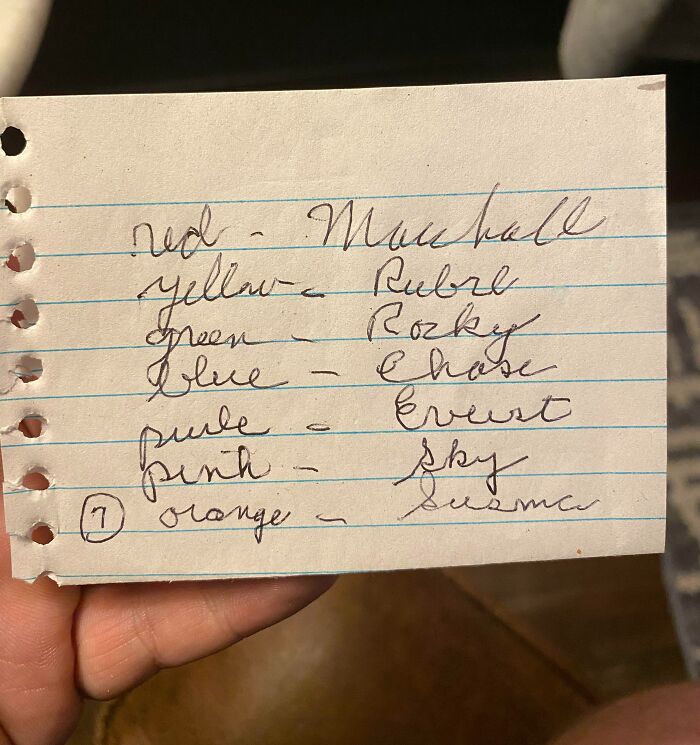 red - Marshall
yellow - Ruble
green - Rocky
blue - Chase
purle - Everst
pink - Sky
7 orange - Susma